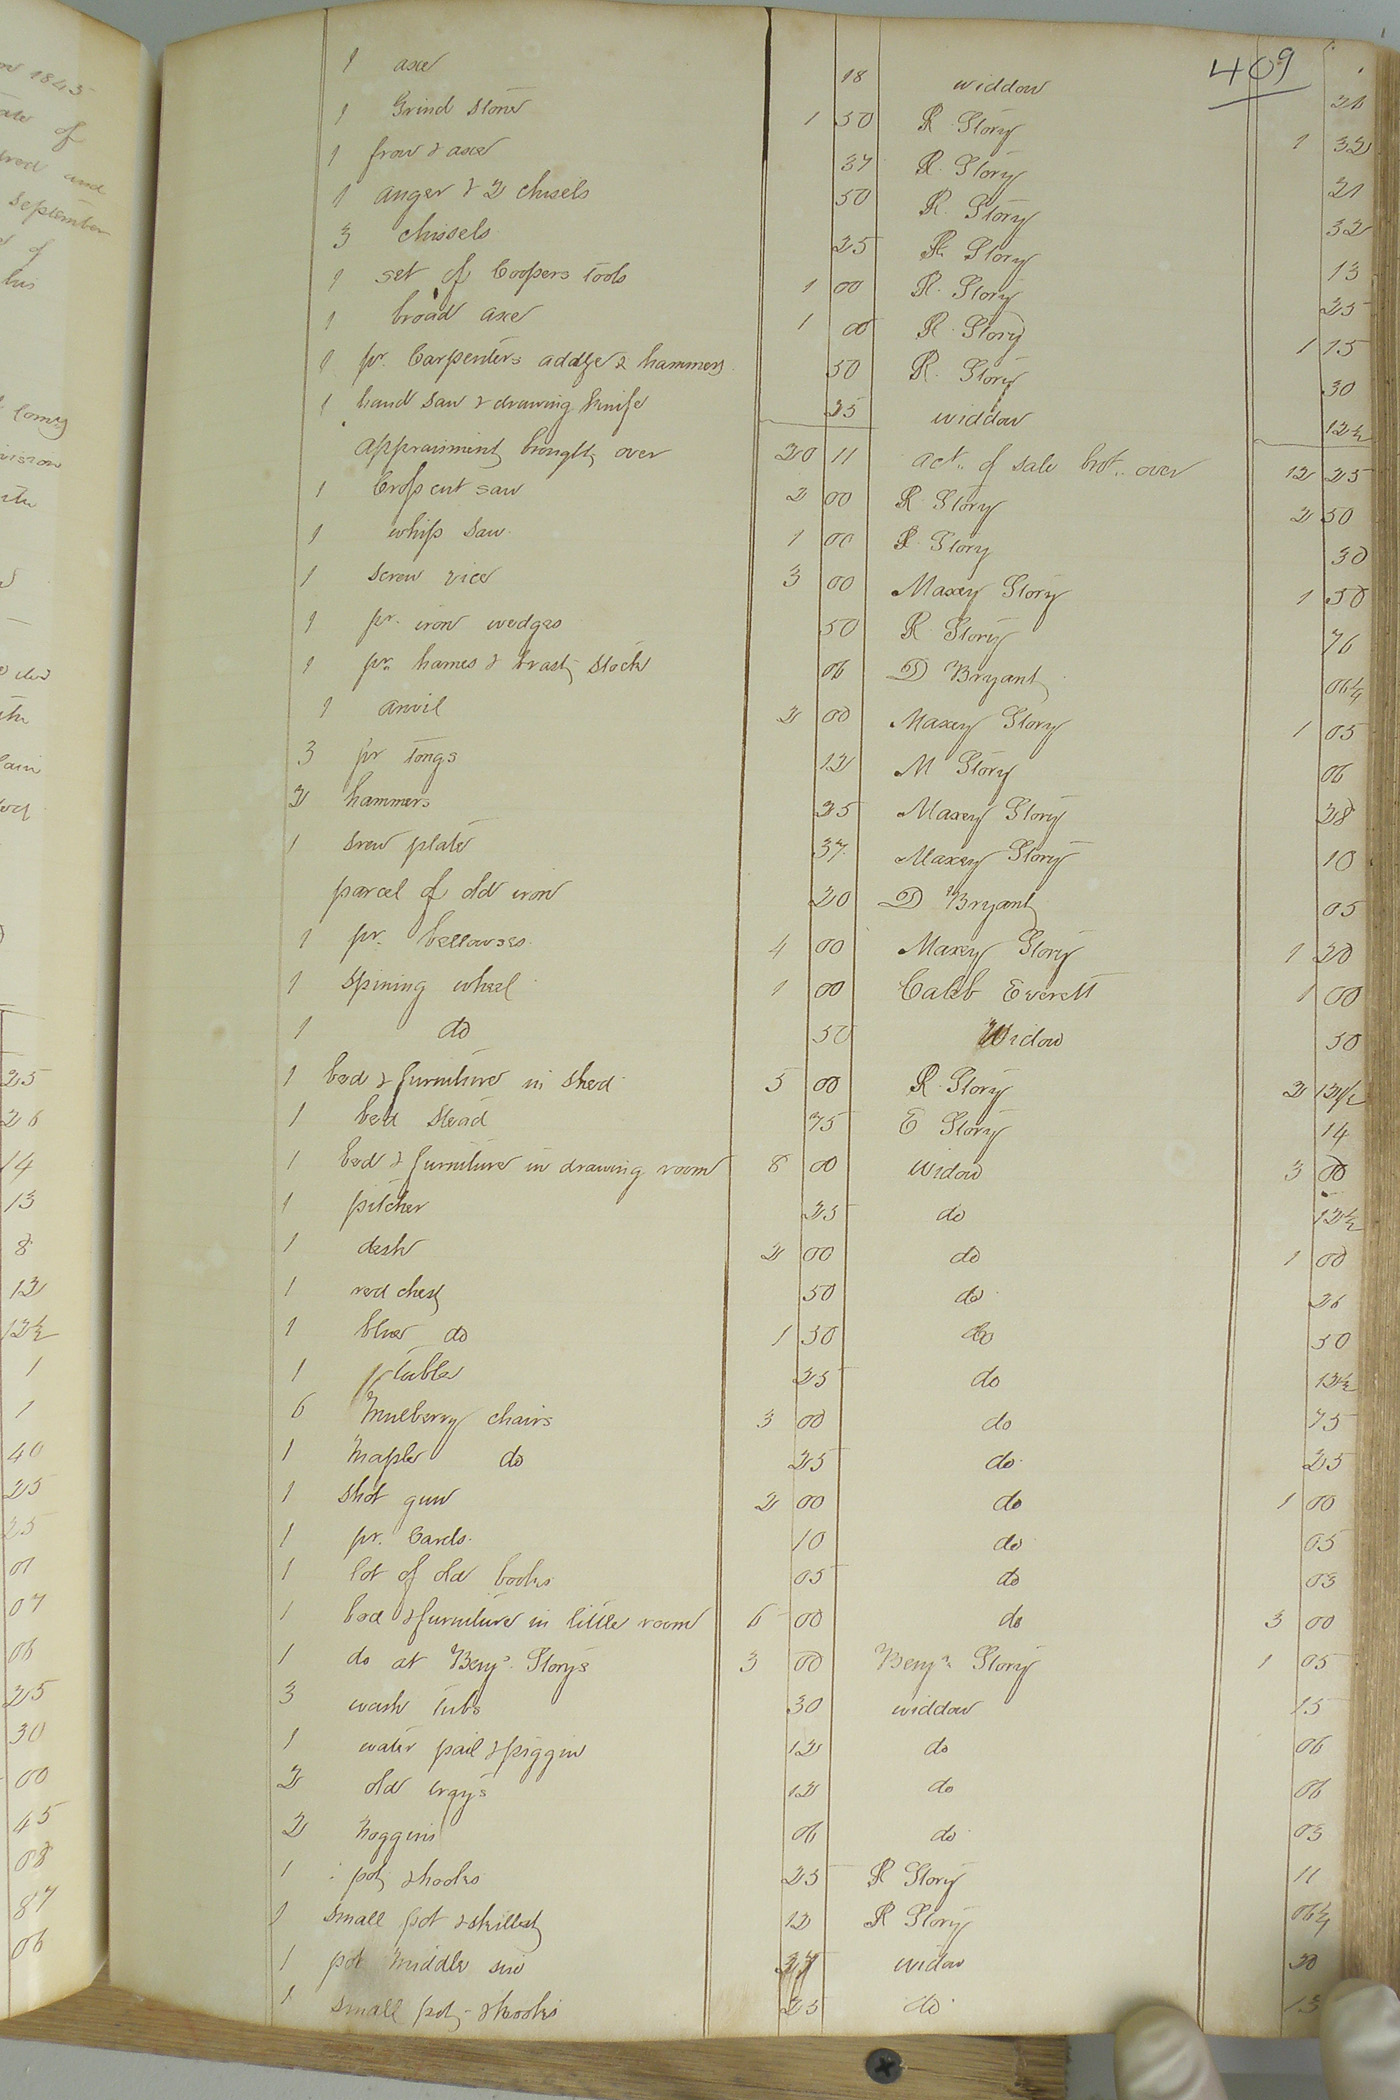 409
1 axe 18 widdow 21
1 Grind stone 1 50 R. Story 1 32
1 frow & axe 37 R. Story 21
1 auger & 2 chisels 50 R. Story 32
3 chissels 25 R. Story 13
1 set of Coopers tools 1 00 R. Story 25
1 broad axe 1 00 R. Story 1 15
1 pr. Carpenters addze & hammers 50 R. Story 30
1 hand saw & drawing knife 25 widdow 12½
Appraisment brought over 20 11 act. of sale brot. over 12 25
1 Cross cut saw 2 00 R Story 2 50
1 whip saw 1 00 R. Story 30
1 screw vice 3 00 Maxey Story 1 50
1 pr. iron wedges 50 R. Story 76
1 pr. hames & brast stock 06 D Bryant 06¼
1 anvil 2 00 Maxey Story 1 05
3 pr tongs 12 M Story 06
2 hammers 25 Maxey Story 28
1 srew plate 37 Maxey Story 10
parcel of old iron 20 D Bryant 05
1 pr. bellowses 4 00 Maxey Story 1 20
1 spining wheel 1 00 Caleb Everett 1 00
1 do 50 Widow 50
1 bed & furniture in shed 5 00 R. Story 2 12½
1 bed stead 75 E Story 14
1 bed & furniture in drawing room 8 00 Widow 3 00
1 pitcher 25 do 12½
1 desk 2 00 do 1 00
1 red chest 50 do 26
1 blue do 1 50 do 50
1 table 25 do 12½
6 Mulberry chairs 3 00 do 75
1 Maple do 25 do 25
1 shot gun 2 00 do 1 00
1 pr. Cards 10 do 05
1 lot of old books 05 do 03
1 bed & furniture in little room 6 00 do 3 00
1 do at Benjn. Storys 3 00 Benjn. Story 1 05
3 wash tubs 30 widdow 15
1 water pail & piggin 12 do 06
2 old trays 12 do 06
2 Noggins 06 do 03
1 pot & hooks 25 R Story 11
1 small pot & skillet 12 R Story 06¼
1 pot middle sise 37 widow 20
1 small pot & hooks 25 do 13